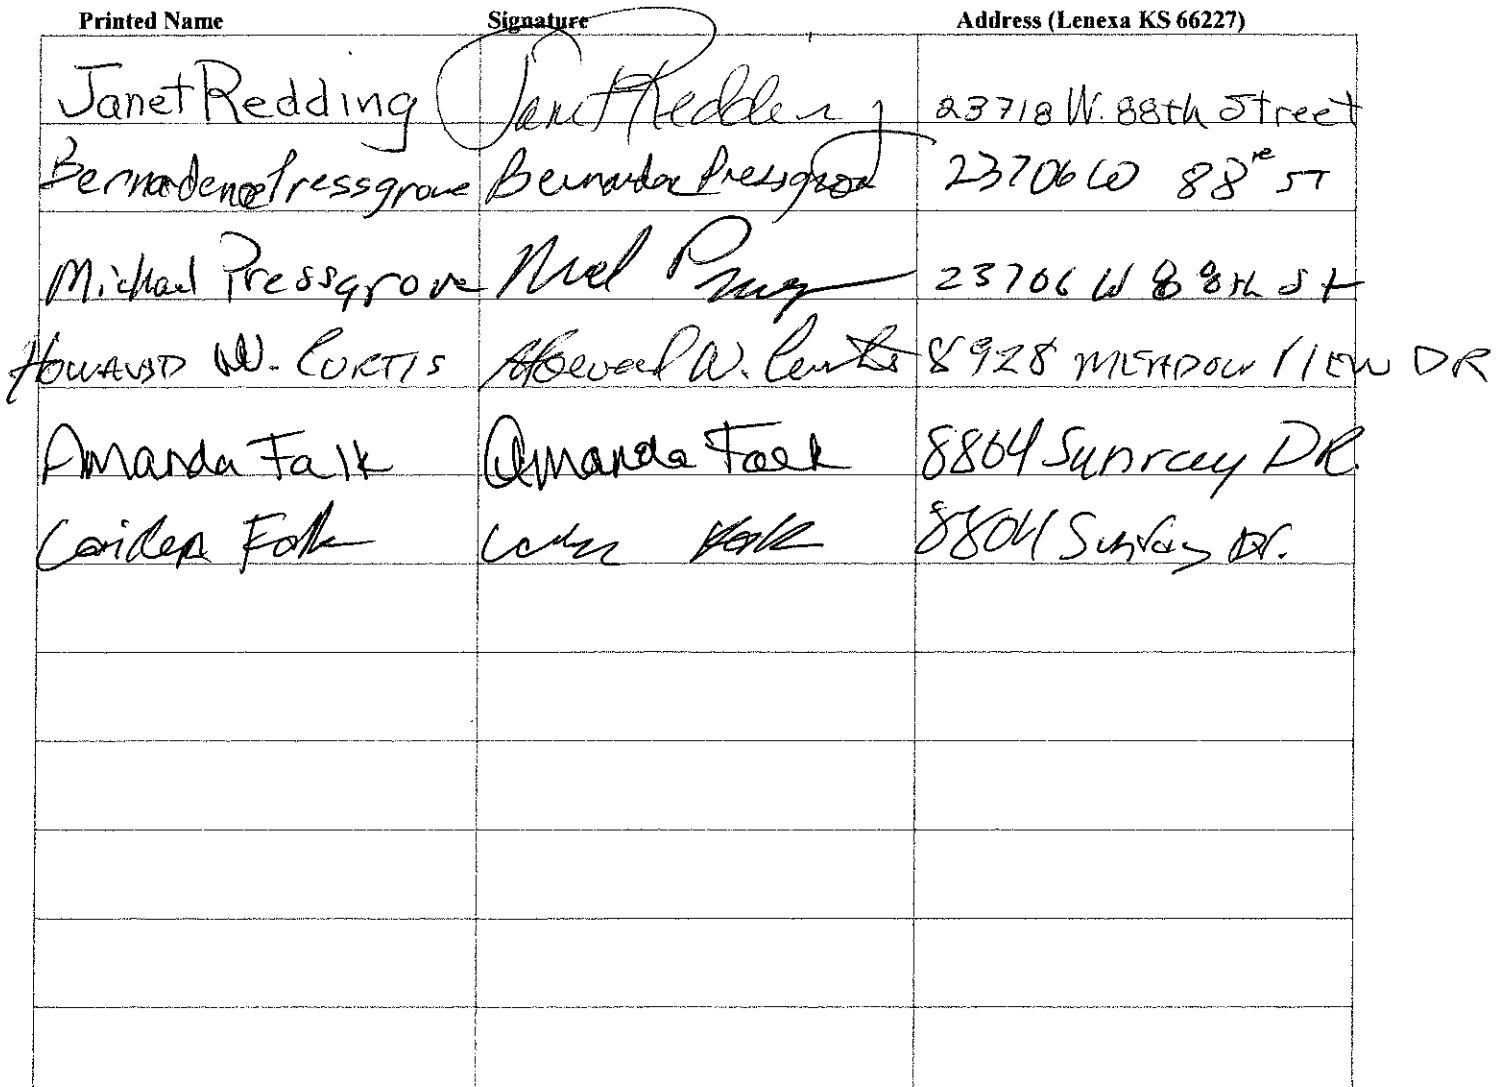 Printed Name Signature Address (Lenexa KS 66227)
Janet Redding Janet Redding 23718 W. 88th Street
Bernadene Pressgrove Bernadene Pressgrove 23706 W 88 ST
Michael Pressgrove 23706 W 88th St
HOWARD W. CURTIS Howard W. Curtis 8928 MEADOW VIEW DR
Amanda Falk Amanda Falk 8804 Sunray DR.
Falk Falk 8804 Sunray Dr.